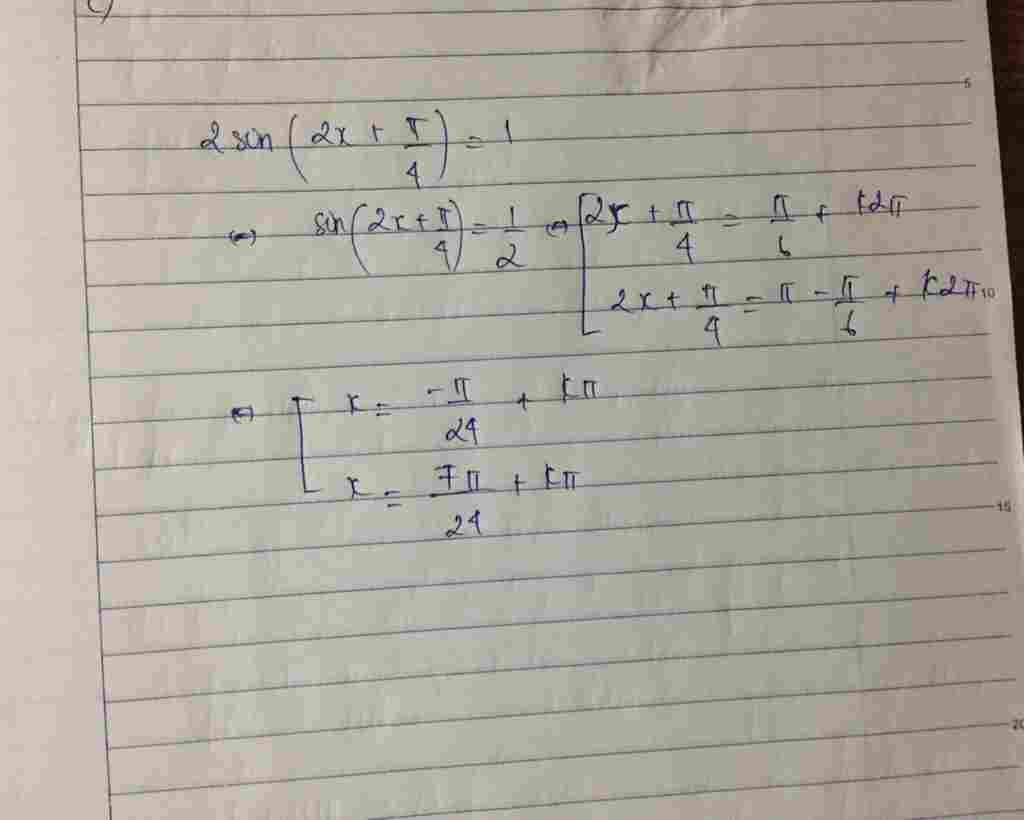 c)
5
2 sin (2x + π/4) = 1
⇔ sin (2x + π/4) = 1/2 ⇔ [ 2x + π/4 = π/6 + k2π
2x + π/4 = π - π/6 + k2π
10
⇔ [ x = -π/24 + kπ
x = 7π/24 + kπ
15
20